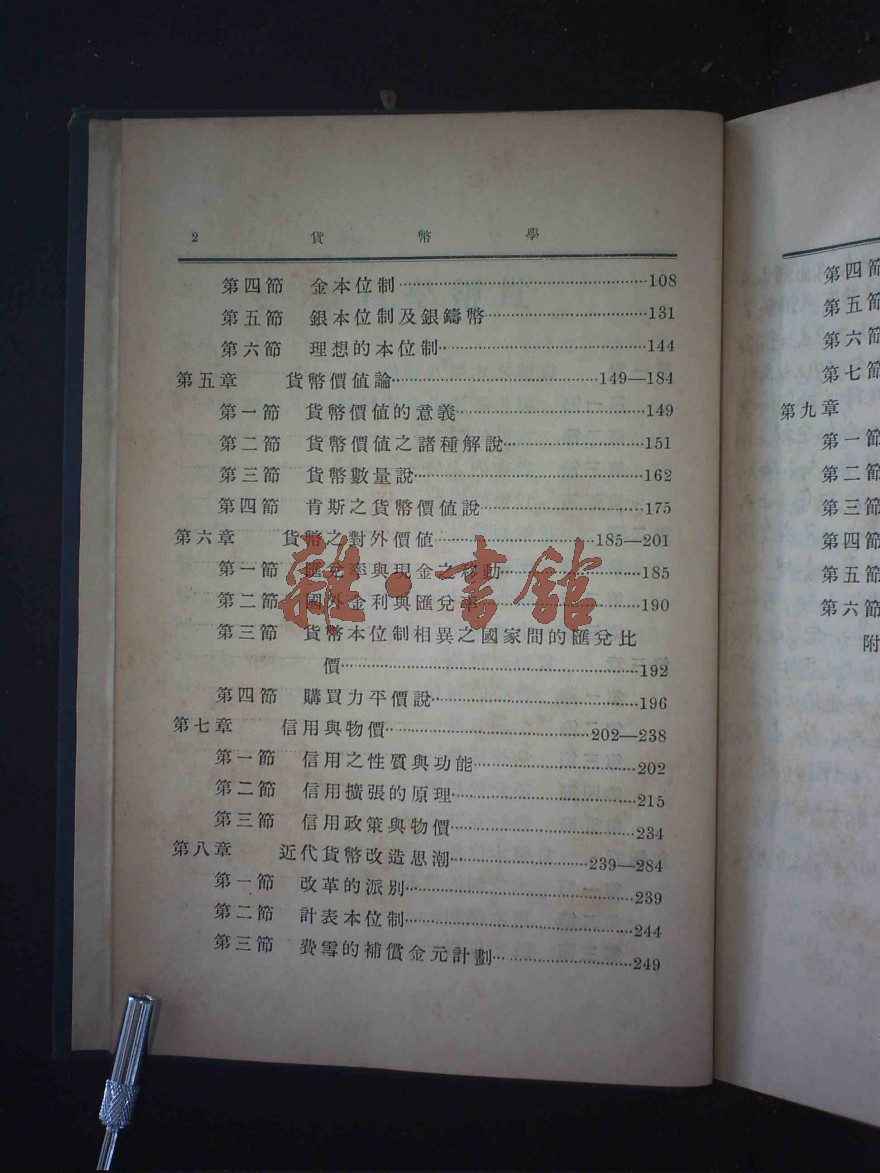 2 貨幣學
第四節 金本位制……108
第五節 銀本位制及銀鑄幣……131
第六節 理想的本位制……144
第五章 貨幣價值論……149—184
第一節 貨幣價值的意義……149
第二節 貨幣價值之諸種解說……151
第三節 貨幣數量說……162
第四節 肯斯之貨幣價值說……175
第六章 貨幣之對外價值……185—201
第一節 匯兌率與現金之移動……185
第二節 國外金利與匯兌率……190
第三節 貨幣本位制相異之國家間的匯兌比
價……192
第四節 購買力平價說……196
第七章 信用與物價……202—238
第一節 信用之性質與功能……202
第二節 信用擴張的原理……215
第三節 信用政策與物價……234
第八章 近代貨幣改造思潮……239—284
第一節 改革的派別……239
第二節 計表本位制……244
第三節 費雪的補償金元計劃……249
雜·書館
第四節
第五節
第六節
第七節
第九章
第一節
第二節
第三節
第四節
第五節
第六節
附